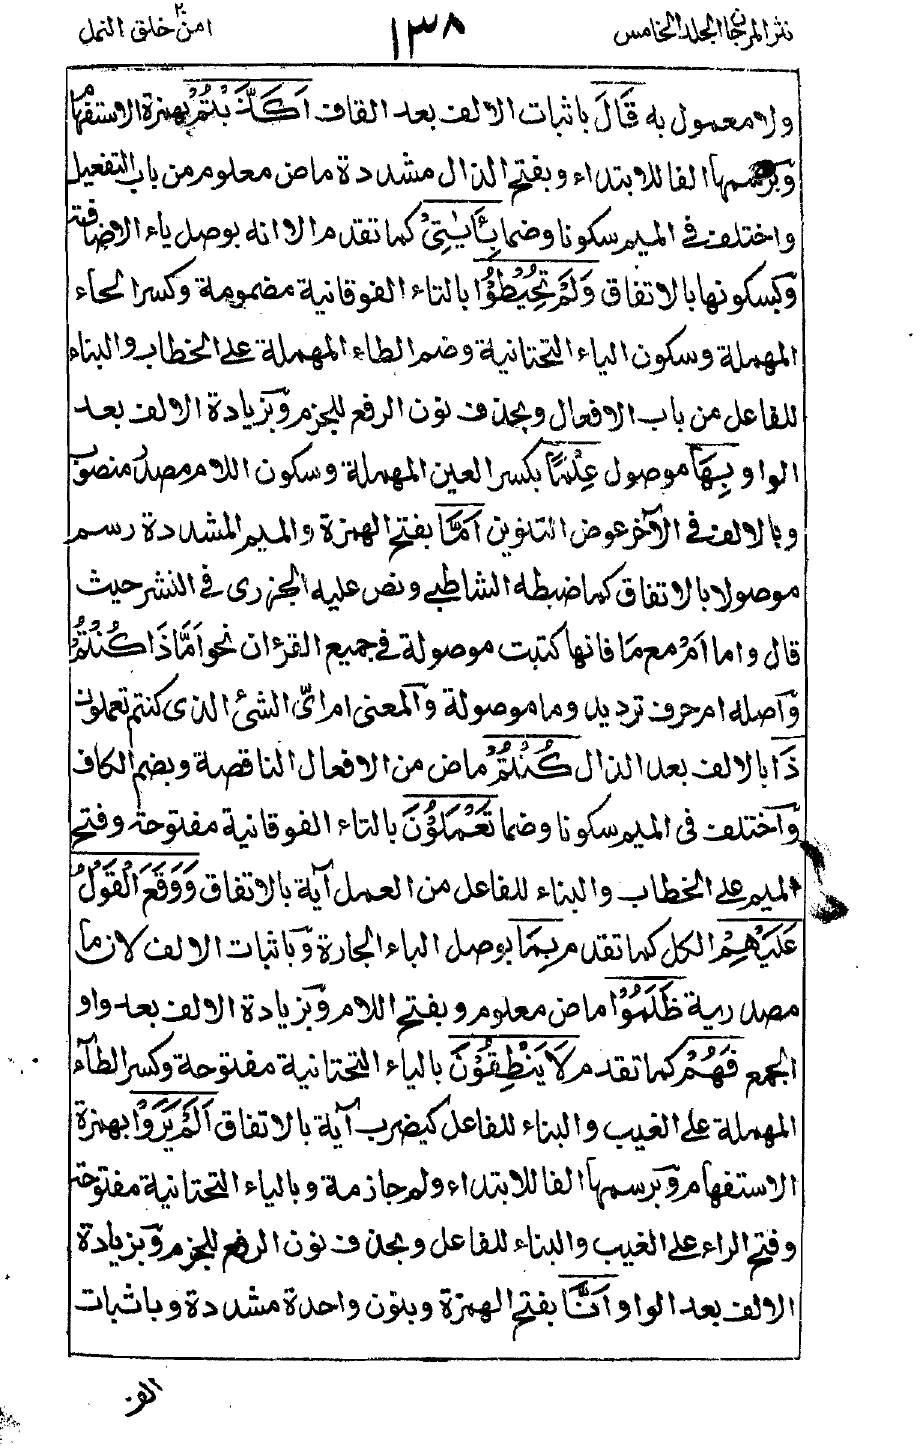 نثر المرجان المجلد الخامس
١٣٨
امن خلق ٢٠ النمل
ولا معمول به قَالَ باثبات الالف بعد القاف اَكَذَّبْتُمْ بهمزة الاستفهام
وَبرسمها الفا للابتداء وبفتح الذال مشددة ماض معلوم من باب التفعيل
واختلف في الميم سكونا وضما بِئَايٰتِىْ كما تقدم الا انه بوصل ياء الاضافة
وَبسكونها بالاتفاق وَلَمْ تُحِيْطُوْا بالتاء الفوقانية مضمومة وكسر الحاء
المهملة وسكون الياء التحتانية وضم الطاء المهملة على الخطاب والبناء
للفاعل من باب الافعال وبحذف نون الرفع للجزم وَبزيادة الالف بعد
الواو بِهَا موصول عِلْمًا بكسر العين المهملة وسكون اللام مصدر منصوب
وبالالف في الآخر عوض التنوين اَمَّا بفتح الهمزة والميم المشددة رسم
موصولا بالاتفاق كما ضبطه الشاطبي ونص عليه الجزرى في النشر حيث
قال واما اَمْ مع مَا فانها كتبت موصولة في جميع القرءان نحو اَمَّا ذَا كُنْتُمْ
وَاصله ام حرف ترديد وما موصولة وَالمعنى ام اىّ الشئ الذى كنتم تعملون
ذَا بالالف بعد الذال كُنْتُمْ ماض من الافعال الناقصة وبضم الكاف
وَاختلف فى الميم سكونا وضما تَعْمَلُوْنَ بالتاء الفوقانية مفتوحة وفتح
الميم على الخطاب والبناء للفاعل من العمل آية بالاتفاق وَوَقَعَ الْقَوْلُ
عَلَيْهِمْ الكل كما تقدم بِمَا بوصل الباء الجارة وَباثبات الالف لان ما
مصدرية ظَلَمُوْا ماض معلوم وبفتح اللام وَبزيادة الالف بعد واو
الجمع فَهُمْ كما تقدم لَا يَنْطِقُوْنَ بالياء التحتانية مفتوحة وكسر الطاء
المهملة على الغيب والبناء للفاعل كيضرب آية بالاتفاق اَلَمْ يَرَوْا بهمزة
الاستفهام وَبرسمها الفا للابتداء ولم جازمة وبالياء التحتانية مفتوحة
وفتح الراء على الغيب والبناء للفاعل وبحذف نون الرفع للجزم وَبزيادة
الالف بعد الواو اَنَّا بفتح الهمزة وبنون واحدة مشددة وباثبات
الف